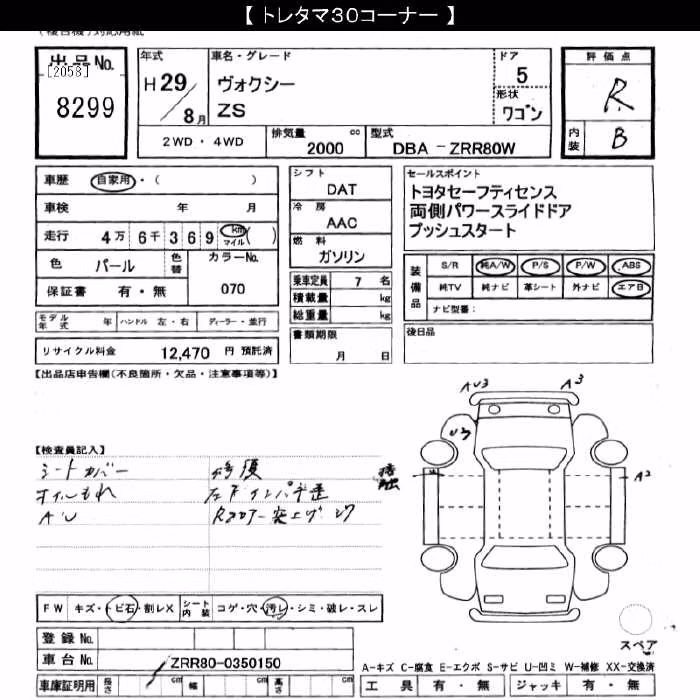 【 トレタマ30コーナー 】
出品No.
[2058]
8299
年式
H 29/8月
車名・グレード
ヴォクシー
ZS
ドア
5
形状
ワゴン
評価点
R
内装
B
2WD・4WD
排気量 cc
2000
型式
DBA － ZRR80W
車歴 自家用・( )
車検 年 月
走行 4万 6千 3 6 9 km マイル ( )
色 パール 色替 カラーNo.
保証書 有・無 070
モデル年式 年 ハンドル 左・右 ディーラー・並行
リサイクル料金 12,470 円 預託済
シフト
DAT
冷房
AAC
燃料
ガソリン
乗車定員 7 名
積載量 kg
総重量 kg
書類期限
月 日
セールスポイント
トヨタセーフティセンス
両側パワースライドドア
プッシュスタート
装備品
S/R 純A/W P/S P/W ABS
純TV 純ナビ 革シート 外ナビ エアB
ナビ型番：
後日品
【出品店申告欄(不良箇所・欠品・注意事項等)】
【検査員記入】
シートカバー
オイルもれ
AU
修復
左下インパネ歪
Rフロアー突上げ
AU3
A3
U3
A2
FW キズ・トビ石・割レX シート内装 コゲ・穴・汚レ・シミ・破レ・スレ
登録No.
車台No. ZRR80-0350150
車庫証明用 長さ cm 幅 cm 高さ cm
スペア
A-キズ C-腐食 E-エクボ S-サビ U-凹ミ W-補修 XX-交換済
工具 有・無 ジャッキ 有・無